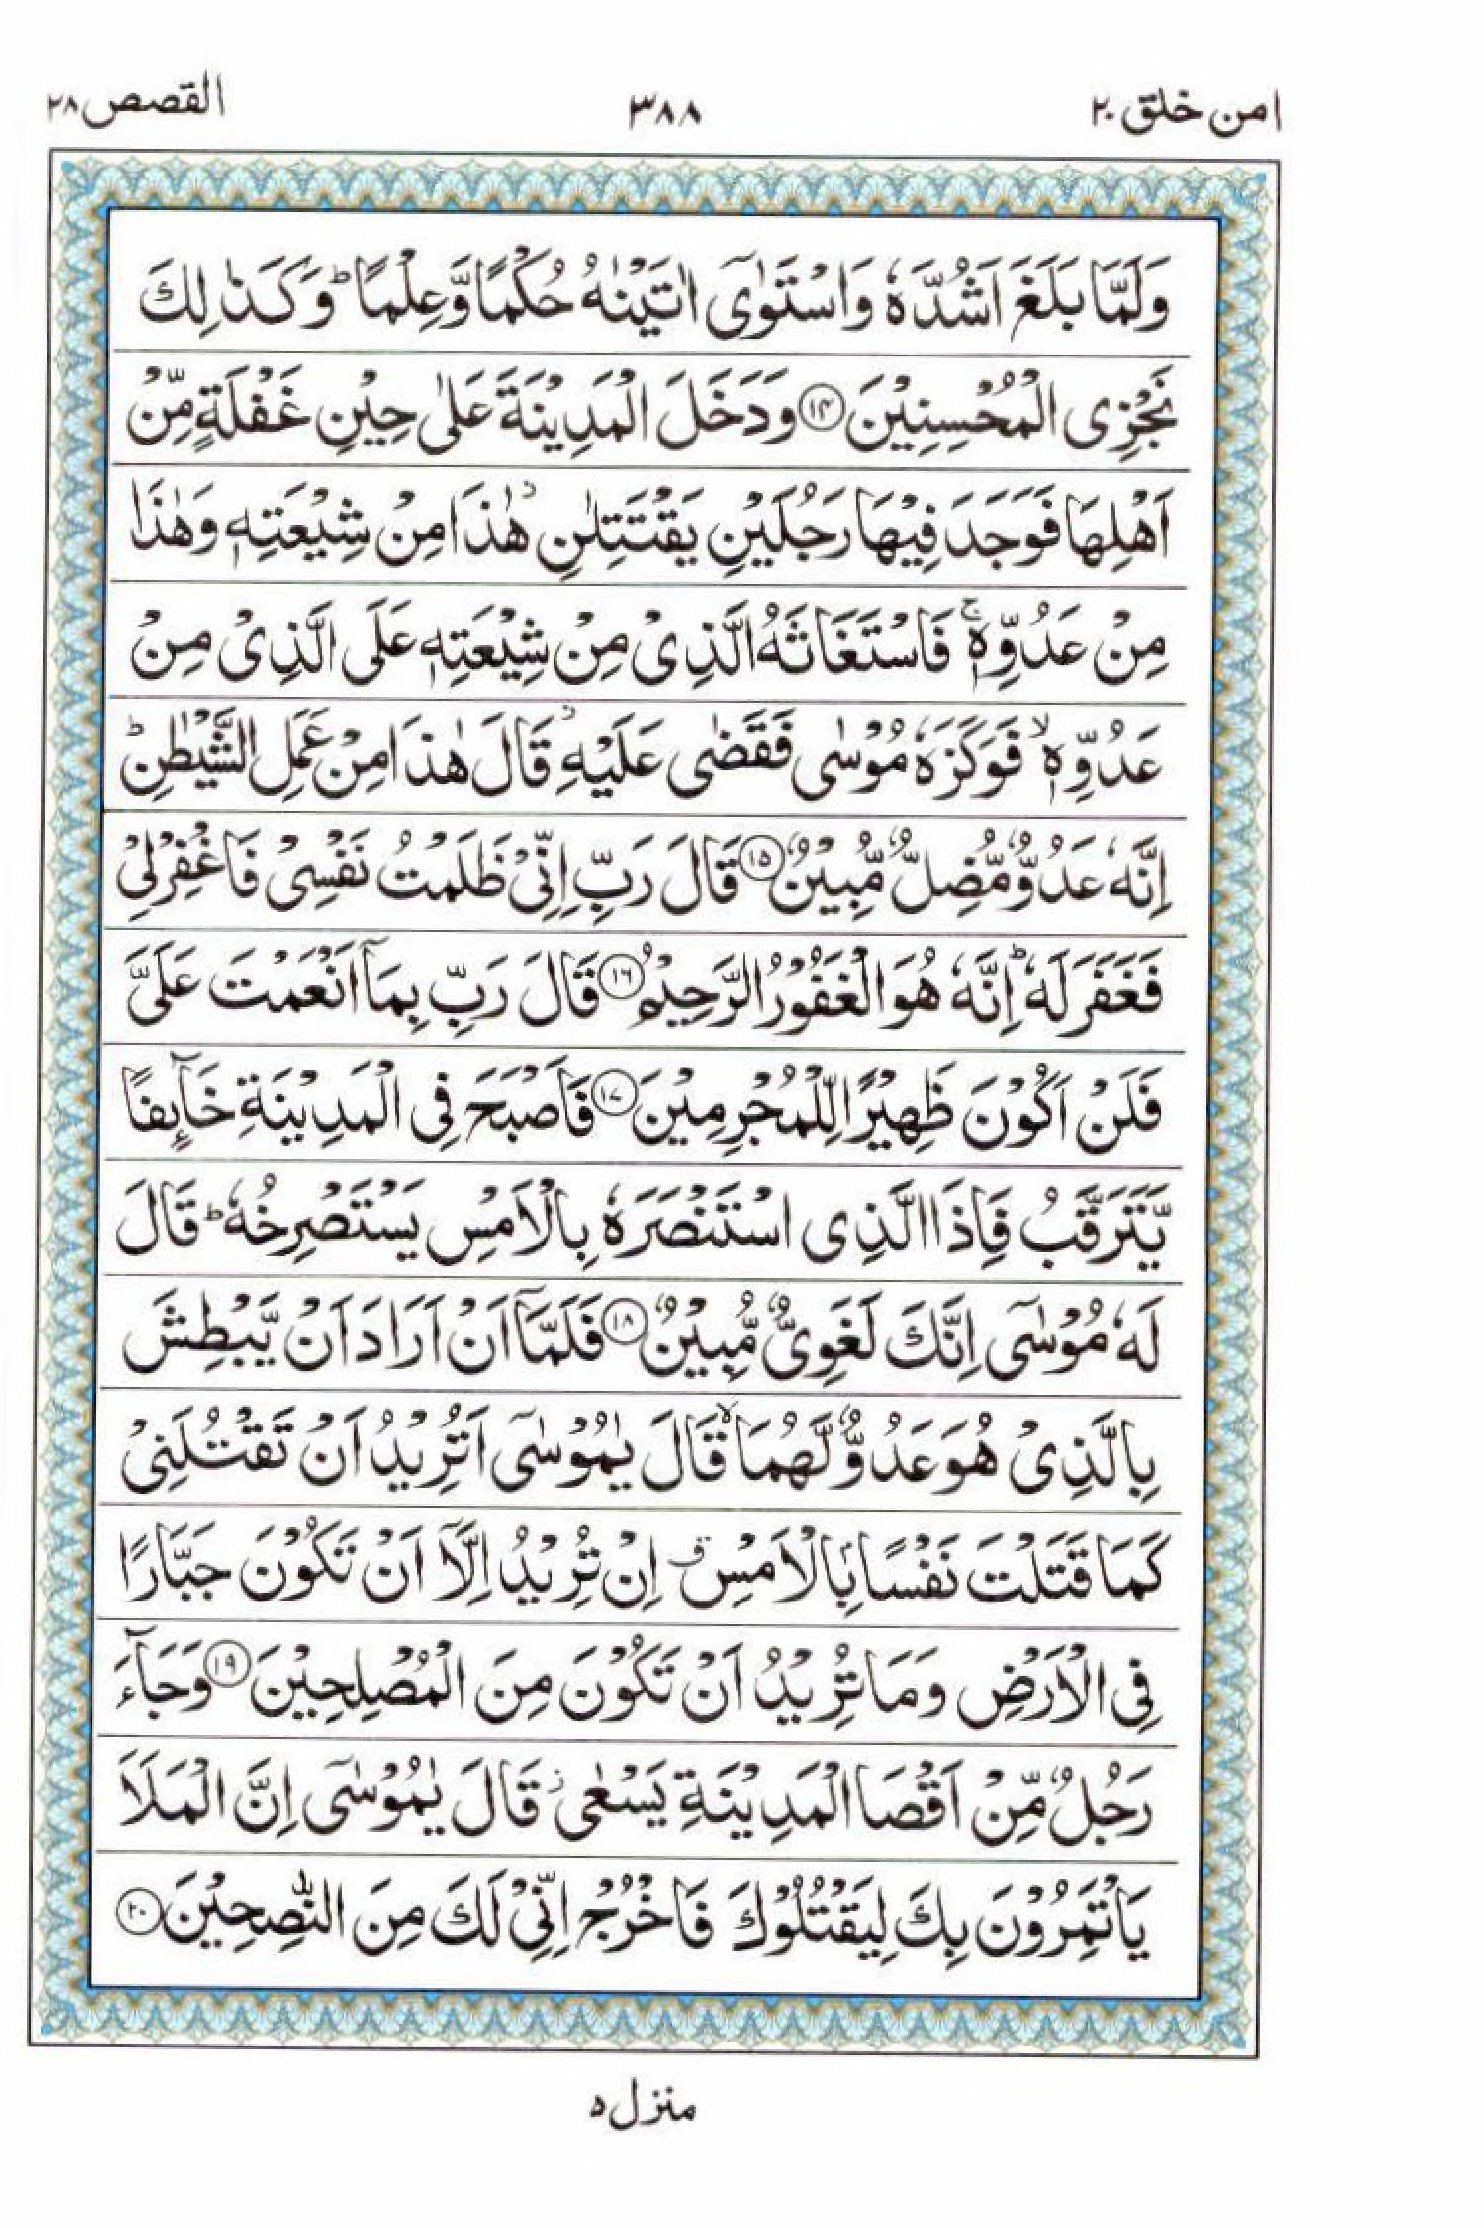 امن خلق ٢٠ ٣٨٨ القصص ٢٨
وَلَمَّا بَلَغَ اَشُدَّهٗ وَاسْتَوٰۤى اٰتَيْنٰهُ حُكْمًا وَّعِلْمًا ؕ وَكَذٰلِكَ
نَجْزِى الْمُحْسِنِيْنَ ﴿١٤﴾ وَدَخَلَ الْمَدِيْنَةَ عَلٰى حِيْنِ غَفْلَةٍ مِّنْ
اَهْلِهَا فَوَجَدَ فِيْهَا رَجُلَيْنِ يَقْتَتِلٰنِ ؗ هٰذَا مِنْ شِيْعَتِهٖ وَهٰذَا
مِنْ عَدُوِّهٖ ۚ فَاسْتَغَاثَهُ الَّذِىْ مِنْ شِيْعَتِهٖ عَلَى الَّذِىْ مِنْ
عَدُوِّهٖ ۙ فَوَكَزَهٗ مُوْسٰى فَقَضٰى عَلَيْهِ ؗ قَالَ هٰذَا مِنْ عَمَلِ الشَّيْطٰنِ ؕ
اِنَّهٗ عَدُوٌّ مُّضِلٌّ مُّبِيْنٌ ﴿١٥﴾ قَالَ رَبِّ اِنِّىْ ظَلَمْتُ نَفْسِىْ فَاغْفِرْلِىْ
فَغَفَرَ لَهٗ ؕ اِنَّهٗ هُوَ الْغَفُوْرُ الرَّحِيْمُ ﴿١٦﴾ قَالَ رَبِّ بِمَاۤ اَنْعَمْتَ عَلَىَّ
فَلَنْ اَكُوْنَ ظَهِيْرًا لِّلْمُجْرِمِيْنَ ﴿١٧﴾ فَاَصْبَحَ فِى الْمَدِيْنَةِ خَآٮِٕفًا
يَّتَرَقَّبُ فَاِذَا الَّذِى اسْتَنْصَرَهٗ بِالْاَمْسِ يَسْتَصْرِخُهٗ ؕ قَالَ
لَهٗ مُوْسٰۤى اِنَّكَ لَغَوِىٌّ مُّبِيْنٌ ﴿١٨﴾ فَلَمَّاۤ اَنْ اَرَادَ اَنْ يَّبْطِشَ
بِالَّذِىْ هُوَ عَدُوٌّ لَّهُمَا ۙ قَالَ يٰمُوْسٰۤى اَتُرِيْدُ اَنْ تَقْتُلَنِىْ
كَمَا قَتَلْتَ نَفْسًۢا بِالْاَمْسِ ۖ اِنْ تُرِيْدُ اِلَّاۤ اَنْ تَكُوْنَ جَبَّارًا
فِى الْاَرْضِ وَمَا تُرِيْدُ اَنْ تَكُوْنَ مِنَ الْمُصْلِحِيْنَ ﴿١٩﴾ وَجَآءَ
رَجُلٌ مِّنْ اَقْصَا الْمَدِيْنَةِ يَسْعٰى ؗ قَالَ يٰمُوْسٰۤى اِنَّ الْمَلَاَ
يَاْتَمِرُوْنَ بِكَ لِيَقْتُلُوْكَ فَاخْرُجْ اِنِّىْ لَكَ مِنَ النّٰصِحِيْنَ ﴿٢٠﴾
منزل ٥